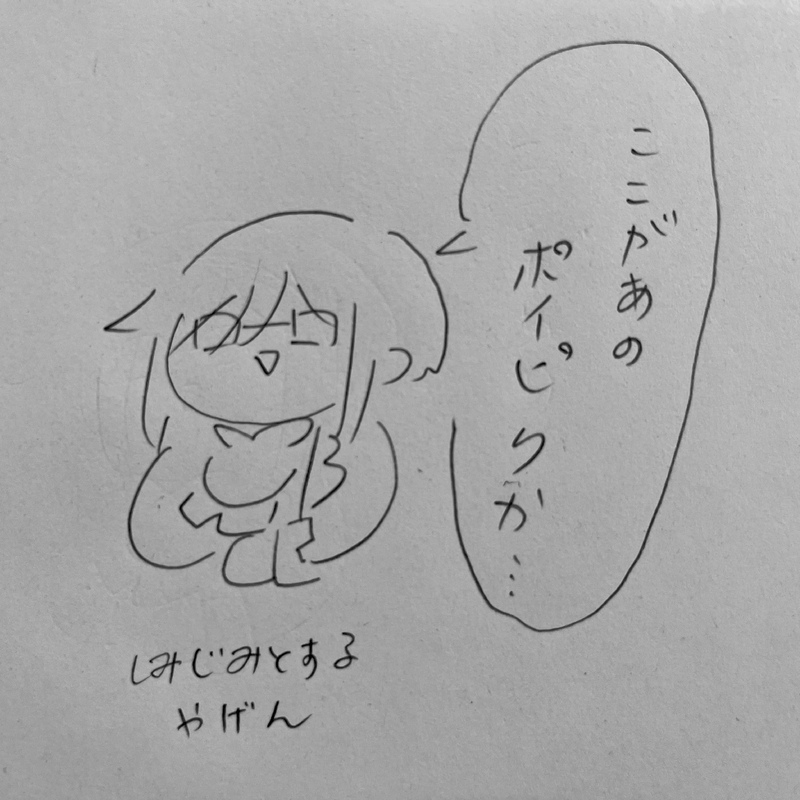 ここがあの
ポイピクか…
しみじみとする
やげん